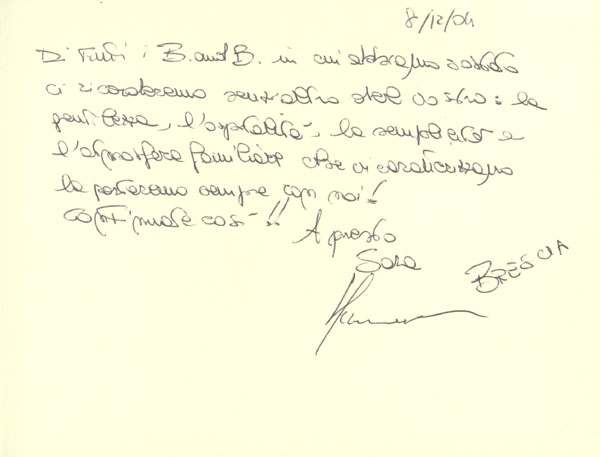 8/12/04
Di tutti i B. and B. in cui abbiamo sostato
ci ricorderemo senz'altro del vostro: la
gentilezza, l'ospitalità, la semplicità e
l'atmosfera familiare che vi caratterizzano
la porteremo sempre con noi!
Continuate così!! A presto
Sara
BRESCIA